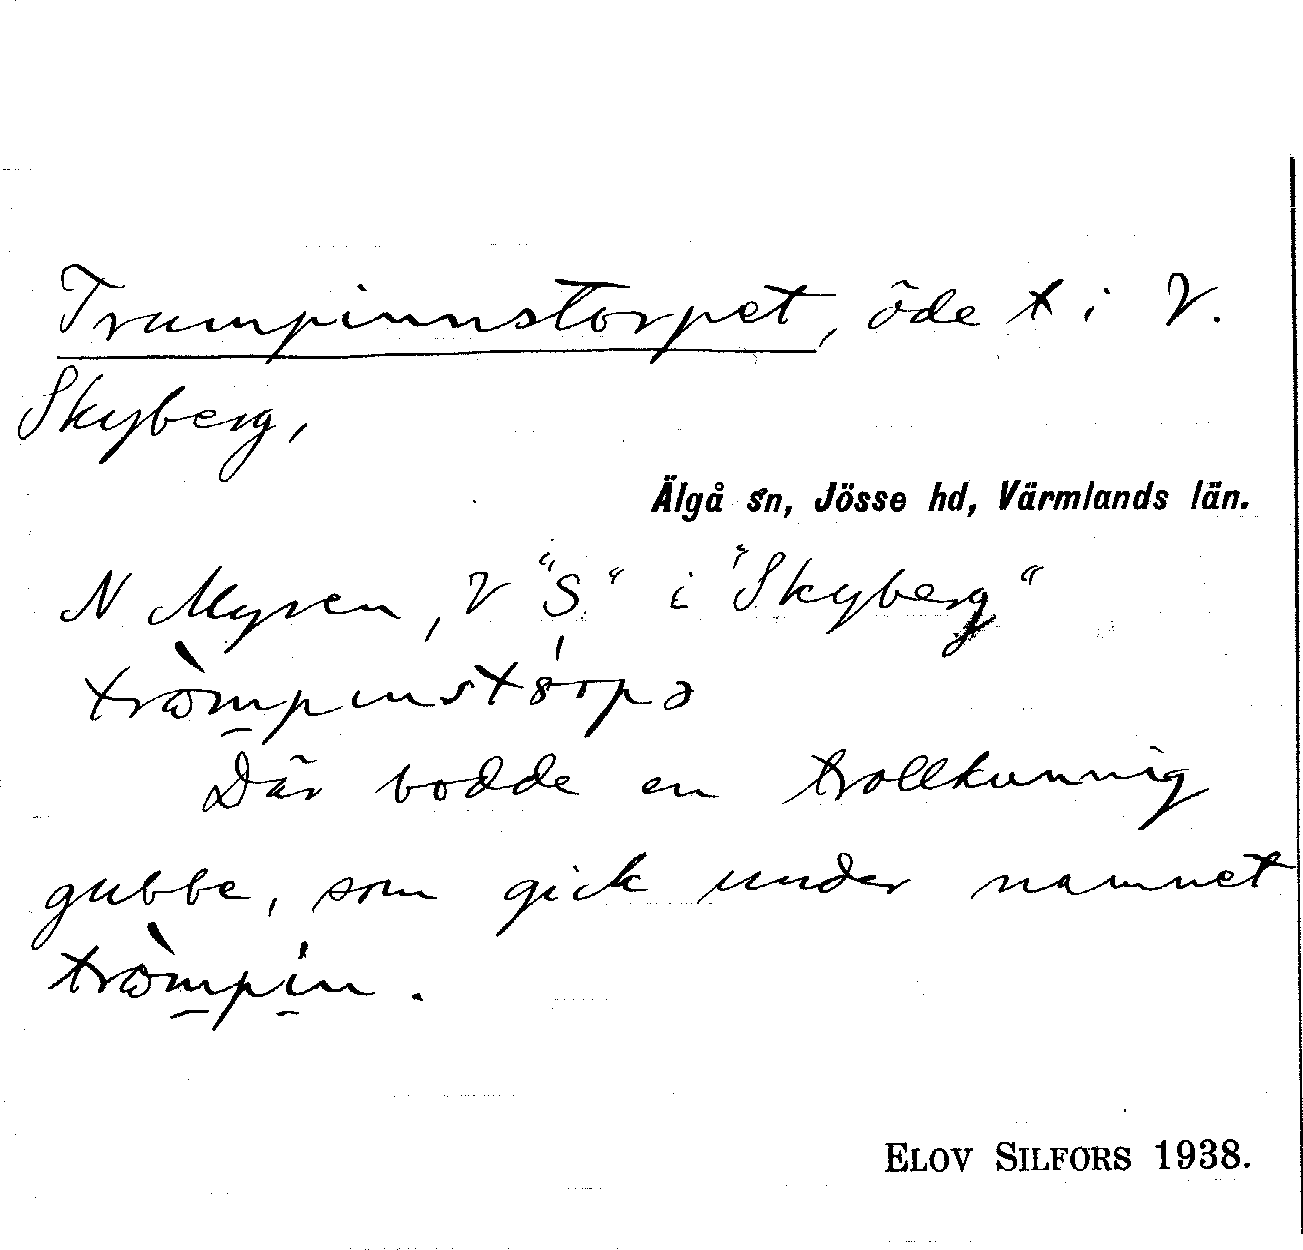 Trumpinnstorpet, öde t i V.
Skyberg,
Älgå sn, Jösse hd, Värmlands län.
N Myren, V "S" i "Skyberg"
trɷ̀mpinstó̤rpə
Där bodde en trollkunnig
gubbe, som gick under namnet
trɷ̀mpín.
ELOV SILFORS 1938.